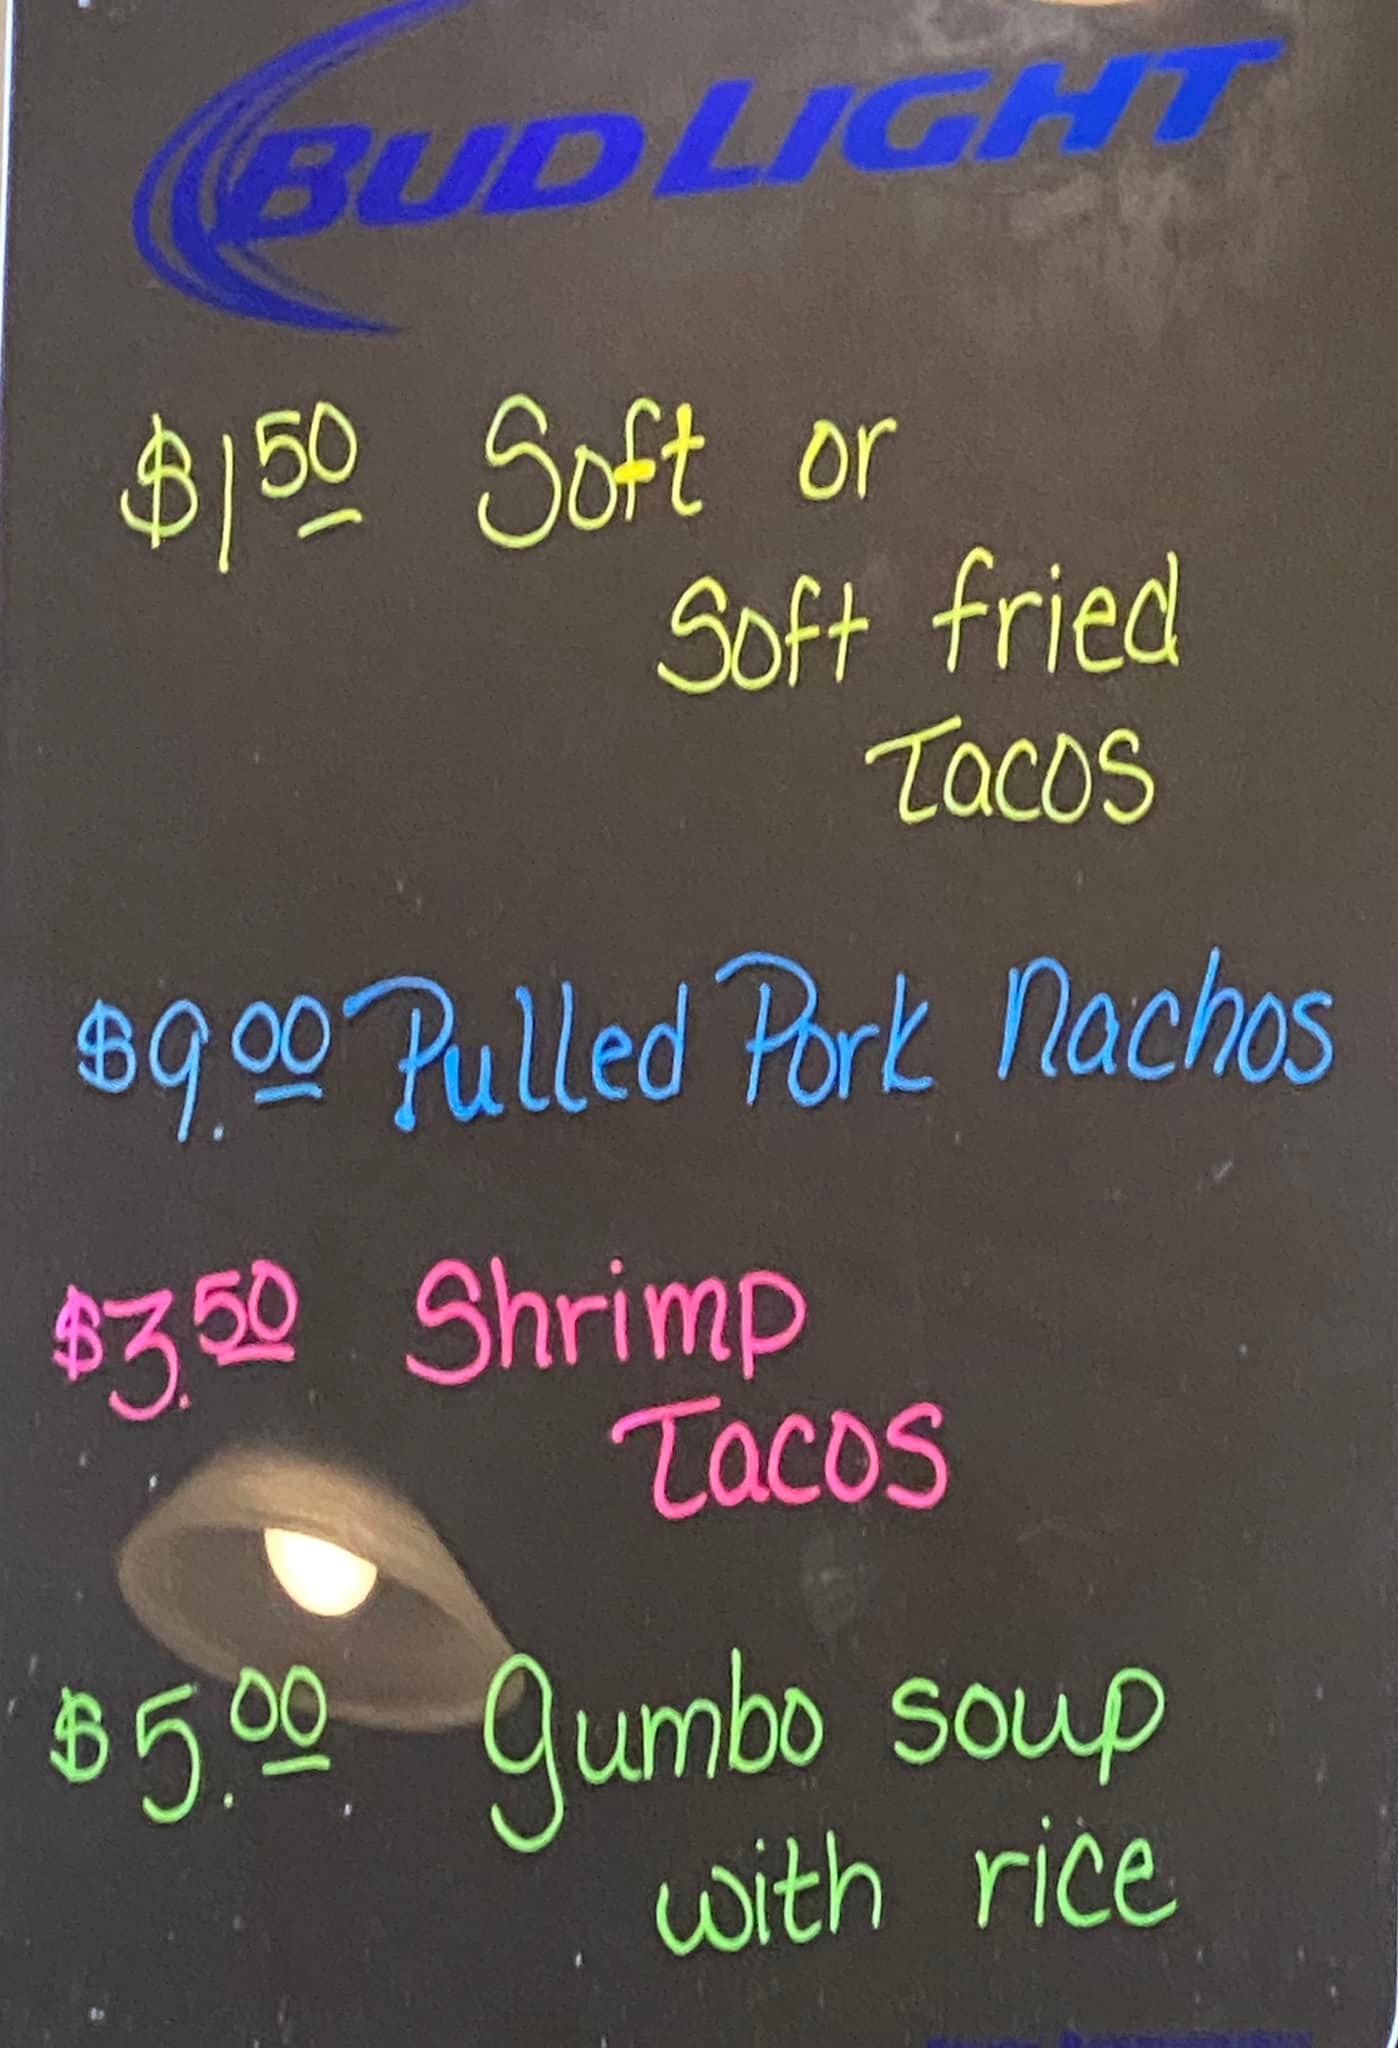 BUD LIGHT
$1 50 Soft or
Soft fried
Tacos
$9.00 Pulled Pork Nachos
$3.50 Shrimp
Tacos
$5.00 gumbo soup
with rice